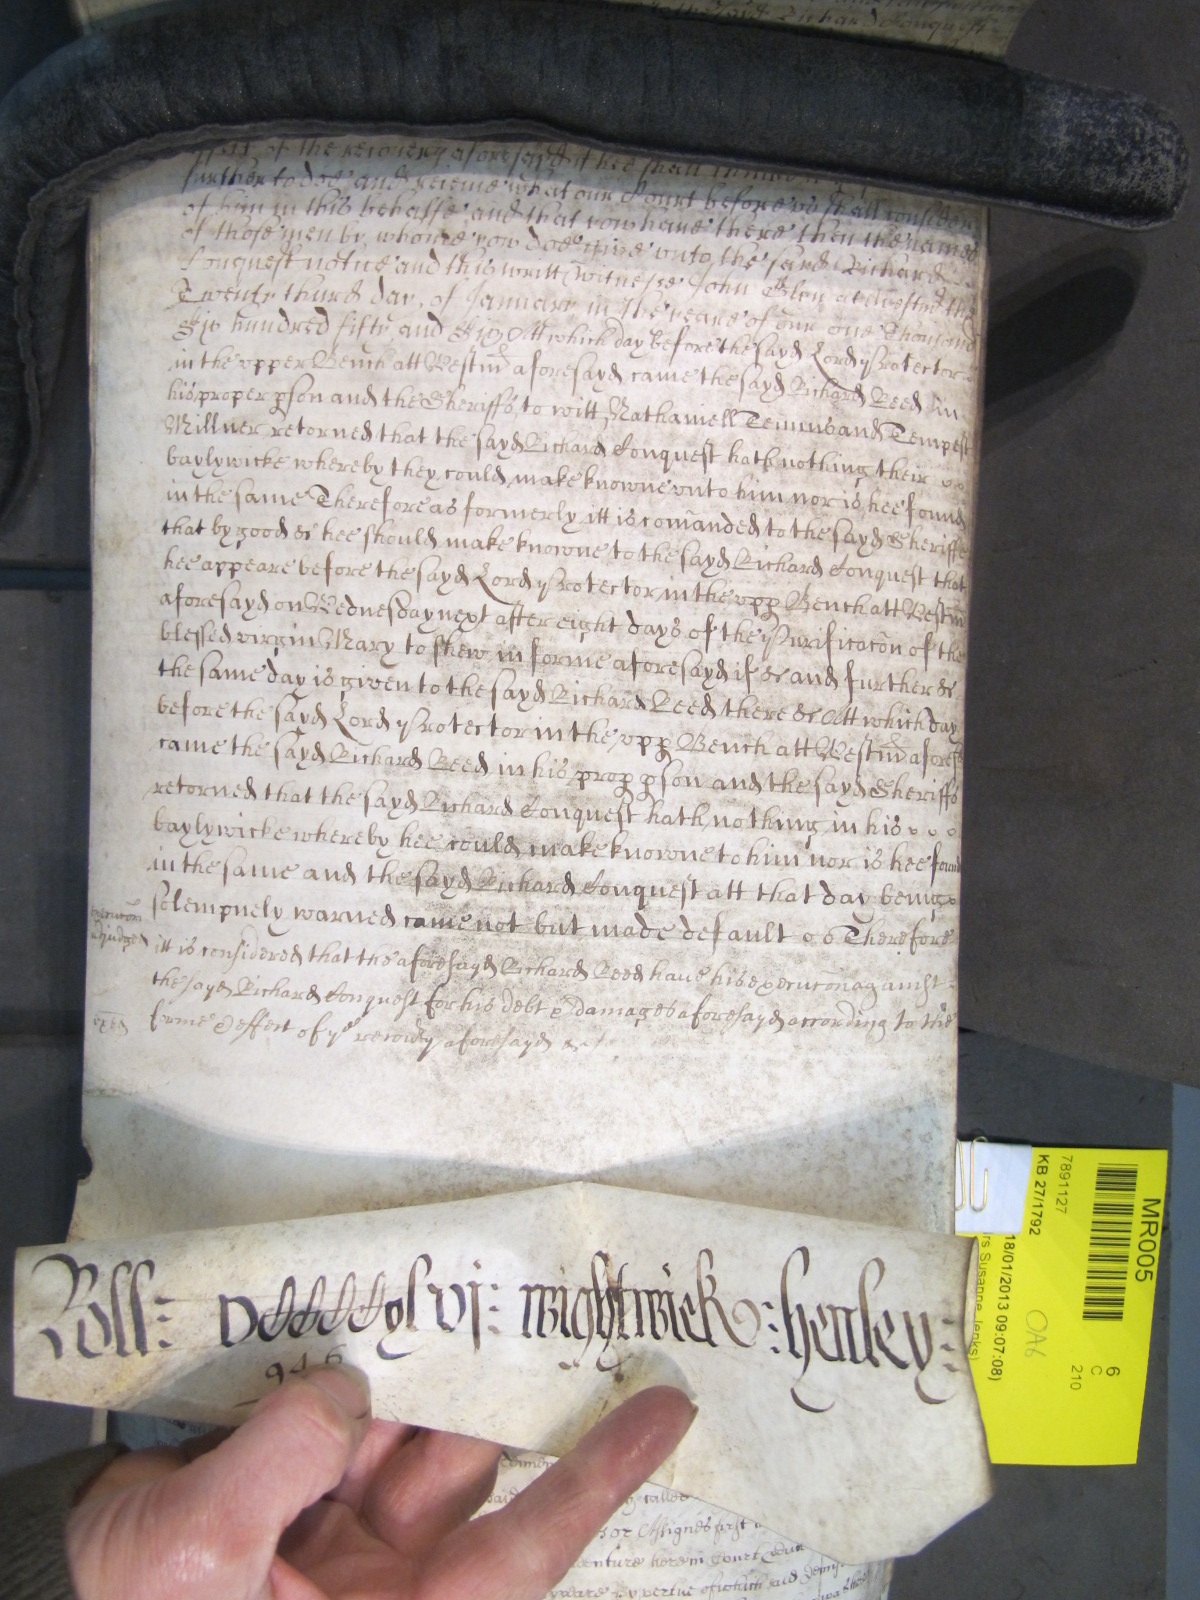 of the recovery aforesayd if hee shall
further to doe and receive what our Court before us shall consider
of him in this behalfe and that yow have there then the names
of those men by whome yow doe give unto the sayd Richard
Conquest notice and this writt Witnesse John Glyn at Westm the
Twenty third day of January in the yeare of our one Thousand
Six hundred fifty and Att which day before the sayd Lord Protector
in the upper Bench att Westm aforesayd came the sayd Richard Reed in
his proper pson and the Sheriffs to witt Nathaniell Temms and Tempest
Millner retorned that the sayd Richard Conquest hath nothing their
baylywicke whereby they could make knowne unto him nor is hee found
in the same Therefore as formerly itt is comanded to the sayd Sheriffs
that by good &c hee should make knowne to the sayd Richard Conquest that
hee appeare before the sayd Lord Protector in the upp Bench att Westm
aforesayd on Wednesday next after eight days of the Purificacon of the
blessed virgin Mary to shew in forme aforesayd if &c and further &c
the same day is given to the sayd Richard Reed there &c Att which day
before the sayd Lord Protector in the upp Bench att Westm aforesd
came the sayd Richard Reed in his prop pson and the sayd Sheriffs
retorned that the sayd Richard Conquest hath nothing in his
baylywicke whereby hee could make knowne to him nor is hee found
in the same and the sayd Richard Conquest att that day being
solempnely warned came not but made default Therefore
itt is considered that the aforesayd Richard Reed have his execucon against
the sayd Richard Conquest for his debt & damages aforesayd according to the
forme & effect of ye recovy aforesayd &c
Roll: Dccccxlvj: Wightwick: Henley:
946
MR005
7891127
KB 27/1792
18/01/2013 09:07:08)
rs Susanne Jenks)
OA6
6
C
210